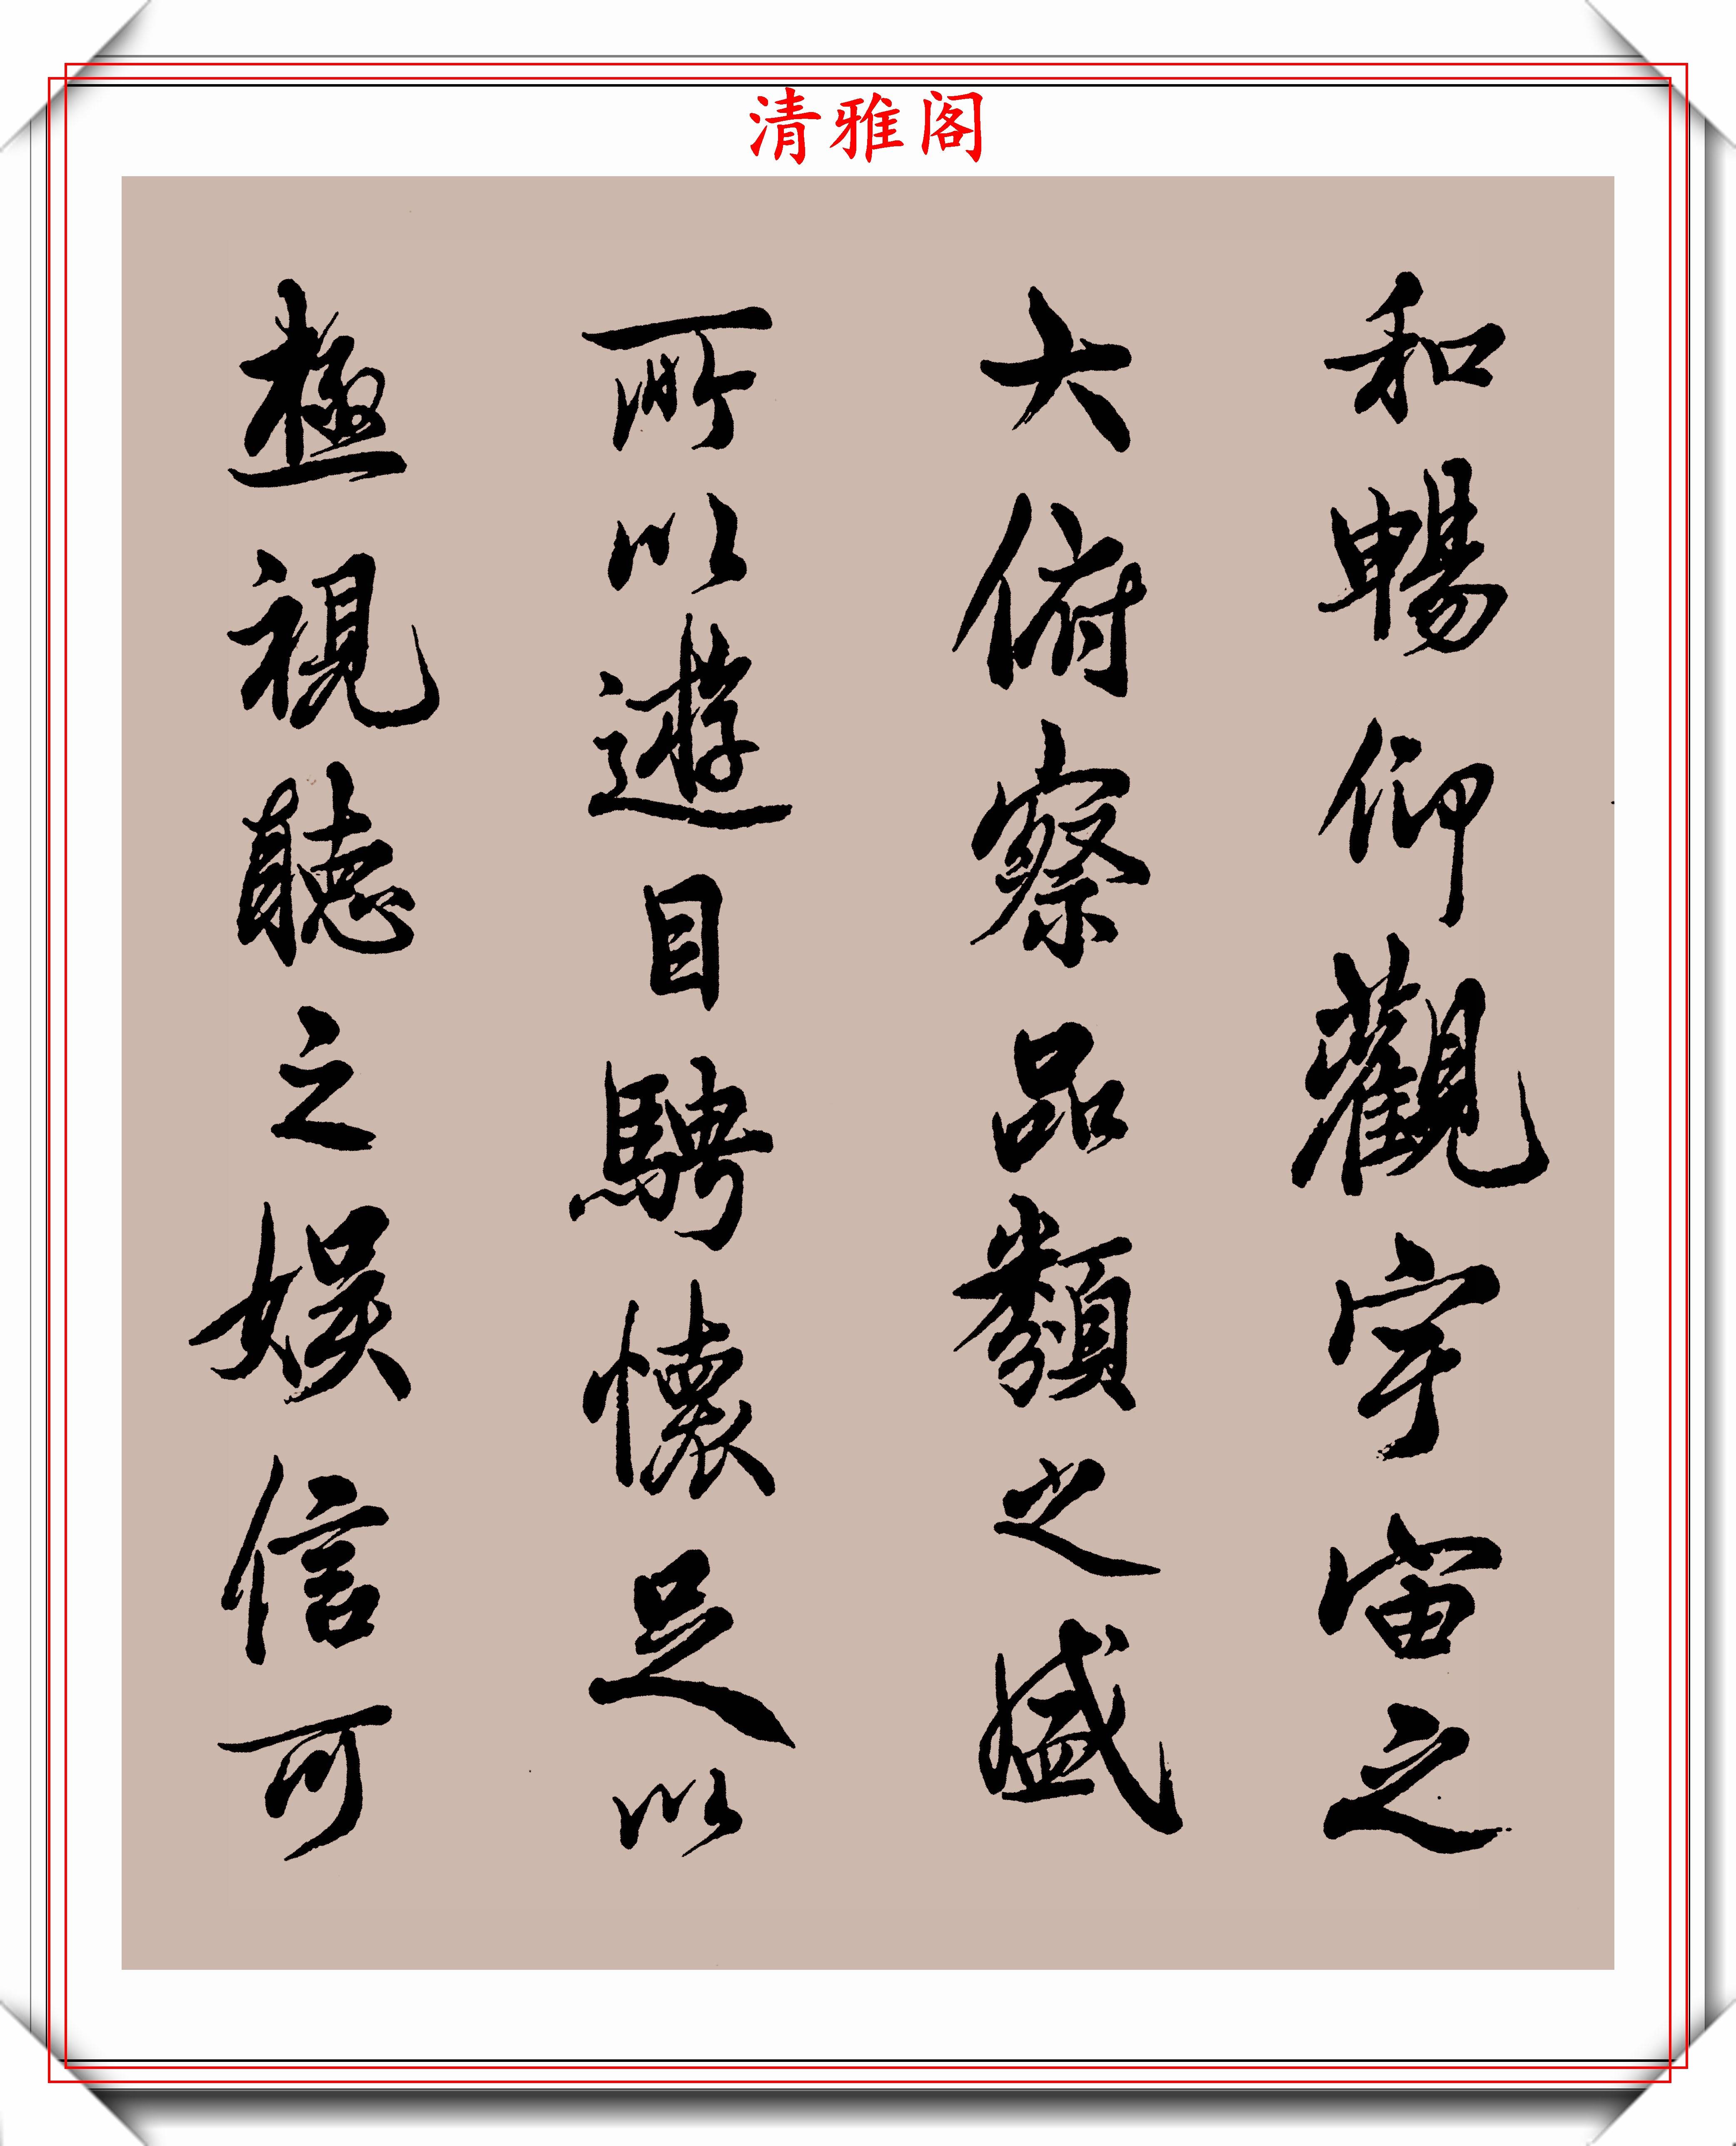 清雅阁
和暢仰觀宇宙之
大俯察品類之盛
所以遊目騁懷足以
極視聽之娛信可